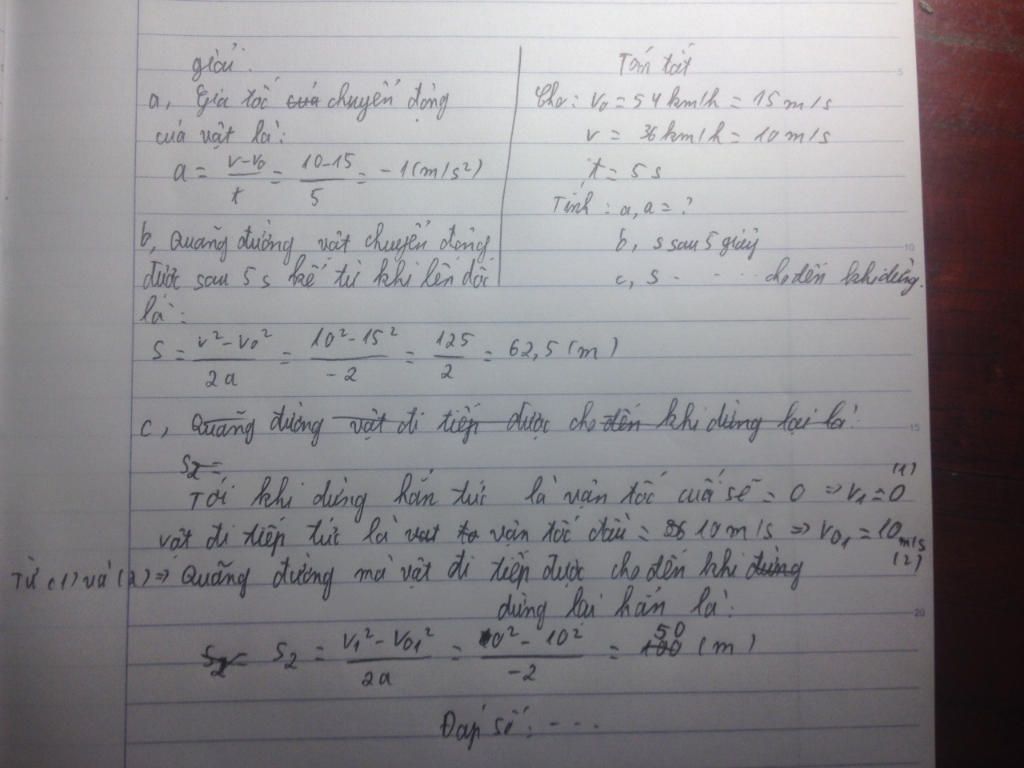 giải:
a, Gia tốc của chuyển động
của vật là:
a = v-v₀/t = 10-15/5 = -1(m/s²)
b, Quãng đường vật chuyển động
được sau 5s kể từ khi lên dốc
là:
s = v²-v₀²/2a = 10²-15²/-2 = 125/2 = 62,5 (m)
Tóm tắt
Cho: v₀ = 54 km/h = 15 m/s
v = 36 km/h = 10 m/s
t = 5 s
Tính: a, a = ?
b, s sau 5 giây
c, s - ... cho đến khi dừng.
c, Quãng đường vật đi tiếp được cho đến khi dừng lại là:
s₂ =
Tới khi dừng hẳn tức là vận tốc cuối sẽ = 0 => v₁ = 0 (1)
vật đi tiếp tức là vận tốc đầu = 10 m/s => v₀₁ = 10 m/s (2)
Từ (1) và (2) => Quãng đường mà vật đi tiếp được cho đến khi dừng
dừng lại hẳn là:
s₂ = s₂ = v₁²-v₀₁²/2a = 0²-10²/-2 = 100 50 (m)
Đáp số: - - - -